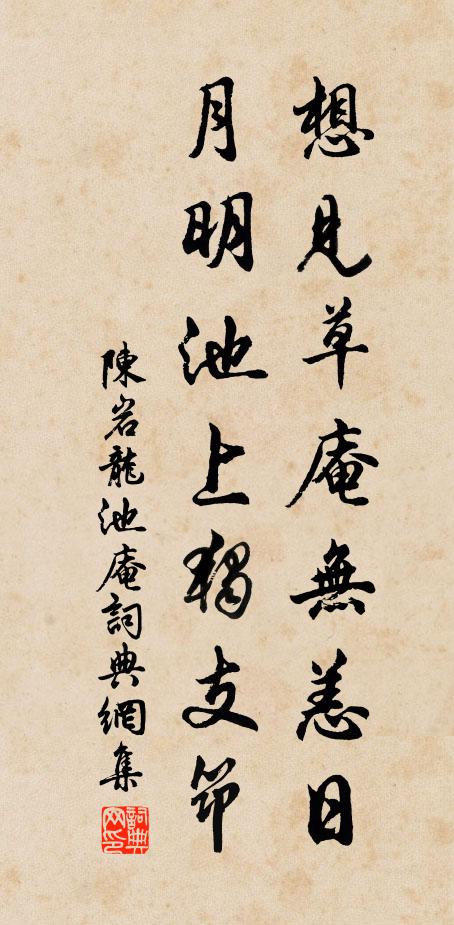 想見草庵無恙日
月明池上獨支筇
陳岩龍池庵詞典網集
詞典網印